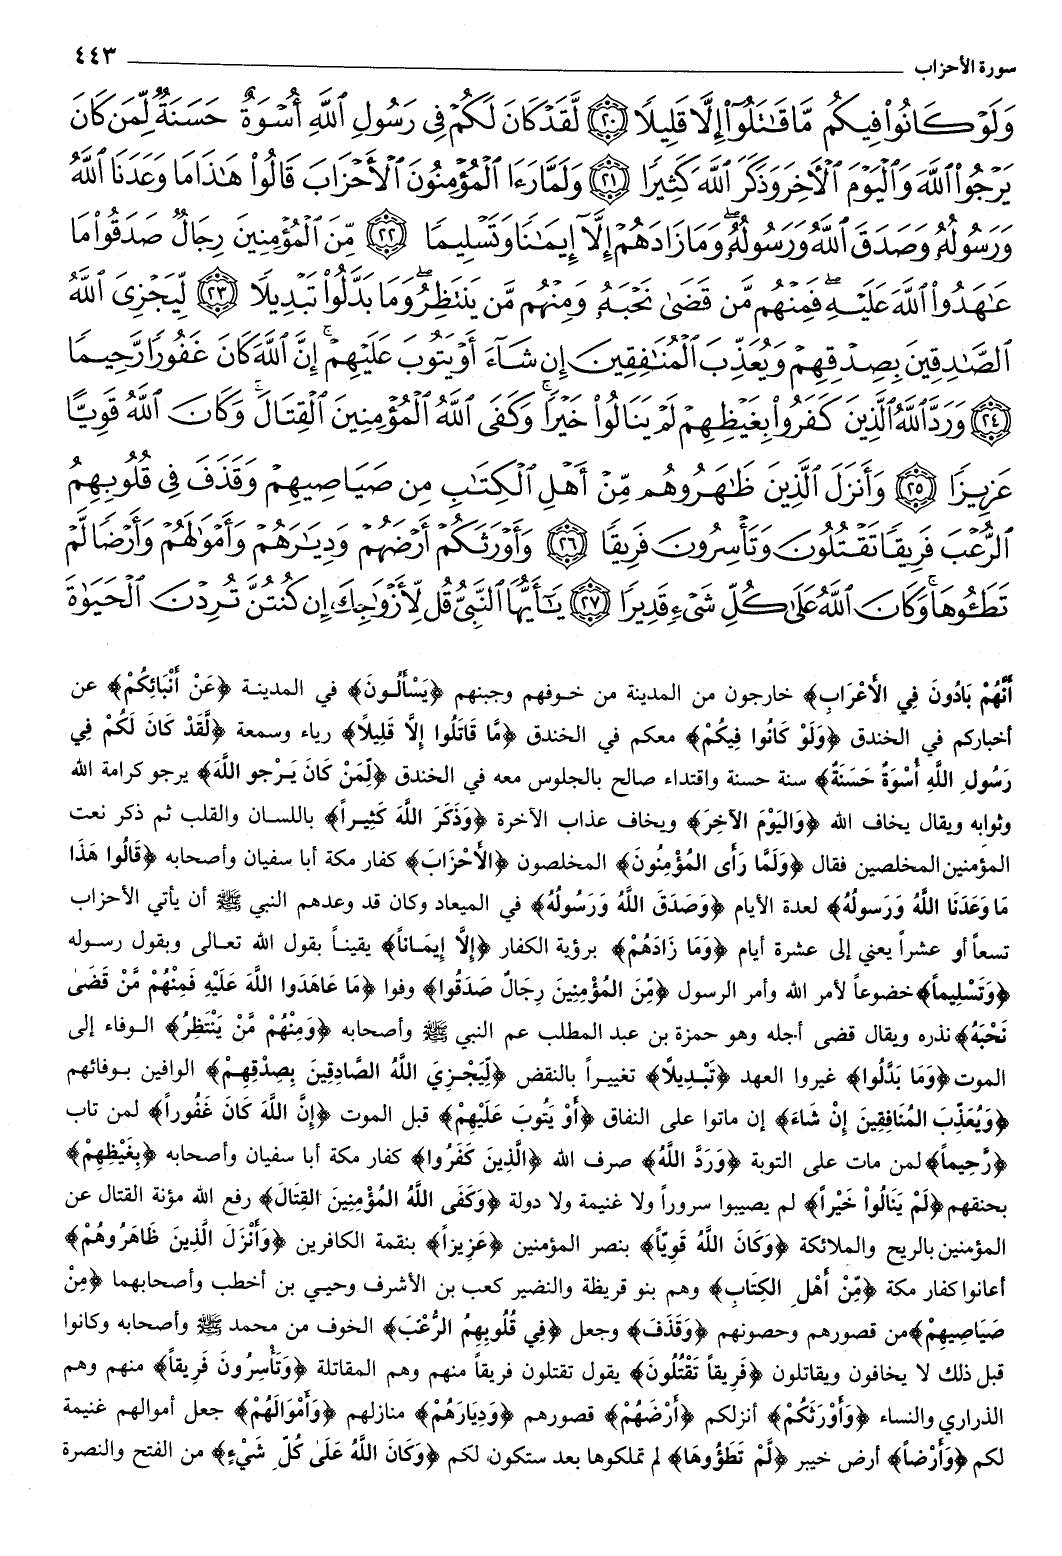 سورة الأحزاب ٤٤٣
وَلَوْ كَانُوا۟ فِيكُم مَّا قَٰتَلُوٓا۟ إِلَّا قَلِيلًا ٢٠ لَّقَدْ كَانَ لَكُمْ فِى رَسُولِ ٱللَّهِ أُسْوَةٌ حَسَنَةٌ لِّمَن كَانَ
يَرْجُوا۟ ٱللَّهَ وَٱلْيَوْمَ ٱلْءَاخِرَ وَذَكَرَ ٱللَّهَ كَثِيرًا ٢١ وَلَمَّا رَءَا ٱلْمُؤْمِنُونَ ٱلْأَحْزَابَ قَالُوا۟ هَٰذَا مَا وَعَدَنَا ٱللَّهُ
وَرَسُولُهُۥ وَصَدَقَ ٱللَّهُ وَرَسُولُهُۥ ۖ وَمَا زَادَهُمْ إِلَّآ إِيمَٰنًا وَتَسْلِيمًا ٢٢ مِّنَ ٱلْمُؤْمِنِينَ رِجَالٌ صَدَقُوا۟ مَا
عَٰهَدُوا۟ ٱللَّهَ عَلَيْهِ ۖ فَمِنْهُم مَّن قَضَىٰ نَحْبَهُۥ وَمِنْهُم مَّن يَنتَظِرُ ۖ وَمَا بَدَّلُوا۟ تَبْدِيلًا ٢٣ لِّيَجْزِىَ ٱللَّهُ
ٱلصَّٰدِقِينَ بِصِدْقِهِمْ وَيُعَذِّبَ ٱلْمُنَٰفِقِينَ إِن شَآءَ أَوْ يَتُوبَ عَلَيْهِمْ ۚ إِنَّ ٱللَّهَ كَانَ غَفُورًا رَّحِيمًا
٢٤ وَرَدَّ ٱللَّهُ ٱلَّذِينَ كَفَرُوا۟ بِغَيْظِهِمْ لَمْ يَنَالُوا۟ خَيْرًا ۚ وَكَفَى ٱللَّهُ ٱلْمُؤْمِنِينَ ٱلْقِتَالَ ۚ وَكَانَ ٱللَّهُ قَوِيًّا
عَزِيزًا ٢٥ وَأَنزَلَ ٱلَّذِينَ ظَٰهَرُوهُم مِّنْ أَهْلِ ٱلْكِتَٰبِ مِن صَيَاصِيهِمْ وَقَذَفَ فِى قُلُوبِهِمُ
ٱلرُّعْبَ فَرِيقًا تَقْتُلُونَ وَتَأْسِرُونَ فَرِيقًا ٢٦ وَأَوْرَثَكُمْ أَرْضَهُمْ وَدِيَٰرَهُمْ وَأَمْوَٰلَهُمْ وَأَرْضًا لَّمْ
تَطَـُٔوهَا ۚ وَكَانَ ٱللَّهُ عَلَىٰ كُلِّ شَىْءٍ قَدِيرًا ٢٧ يَٰٓأَيُّهَا ٱلنَّبِىُّ قُل لِّأَزْوَٰجِكَ إِن كُنتُنَّ تُرِدْنَ ٱلْحَيَوٰةَ
أَنَّهُمْ بَادُونَ فِي الأَعْرَابِ﴾ خارجون من المدينة من خوفهم وجبنهم ﴿يَسْأَلُونَ﴾ في المدينة ﴿عَنْ أَنْبَائِكُمْ﴾ عن
أخباركم في الخندق ﴿وَلَوْ كَانُوا فِيكُمْ﴾ معكم في الخندق ﴿مَّا قَاتَلُوا إِلَّا قَلِيلًا﴾ رياء وسمعة ﴿لَّقَدْ كَانَ لَكُمْ فِي
رَسُولِ اللَّهِ أُسْوَةٌ حَسَنَةٌ﴾ سنة حسنة واقتداء صالح بالجلوس معه في الخندق ﴿لِّمَنْ كَانَ يَرْجو اللَّهَ﴾ يرجو كرامة الله
وثوابه ويقال يخاف الله ﴿وَاليَوْمَ الآخِرَ﴾ ويخاف عذاب الآخرة ﴿وَذَكَرَ اللَّهَ كَثِيراً﴾ باللسان والقلب ثم ذكر نعت
المؤمنين المخلصين فقال ﴿وَلَمَّا رَأَى المُؤْمِنُونَ﴾ المخلصون ﴿الأَحْزَابَ﴾ كفار مكة أبا سفيان وأصحابه ﴿قَالُوا هَذَا
مَا وَعَدَنَا اللَّهُ وَرَسولُهُ﴾ لعدة الأيام ﴿وَصَدَقَ اللَّهُ وَرَسُولُهُ﴾ في الميعاد وكان قد وعدهم النبي ﷺ أن يأتي الأحزاب
تسعاً أو عشراً يعني إلى عشرة أيام ﴿وَمَا زَادَهُمْ﴾ برؤية الكفار ﴿إِلَّا إِيمَاناً﴾ يقيناً بقول الله تعالى وبقول رسوله
﴿وَتَسْلِيماً﴾ خضوعاً لأمر الله وأمر الرسول ﴿مِّنَ المُؤْمِنِينَ رِجَالٌ صَدَقُوا﴾ وفوا ﴿مَا عَاهَدَوا اللَّهَ عَلَيْهِ فَمِنْهُمْ مَّنْ قَضَىٰ
نَحْبَهُ﴾ نذره ويقال قضى أجله وهو حمزة بن عبد المطلب عم النبي ﷺ وأصحابه ﴿وَمِنْهُمْ مَّنْ يَنْتَظِرُ﴾ الوفاء إلى
الموت ﴿وَمَا بَدَّلُوا﴾ غيروا العهد ﴿تَبْدِيلًا﴾ تغييراً بالنقض ﴿لِّيَجْزِيَ اللَّهُ الصَّادِقِينَ بِصِدْقِهِمْ﴾ الوافين بوفائهم
﴿وَيُعَذِّبَ المُنَافِقِينَ إِنْ شَاءَ﴾ إن ماتوا على النفاق ﴿أَوْ يَتُوبَ عَلَيْهِمْ﴾ قبل الموت ﴿إِنَّ اللَّهَ كَانَ غَفُوراً﴾ لمن تاب
﴿رَّحِيماً﴾ لمن مات على التوبة ﴿وَرَدَّ اللَّهُ﴾ صرف الله ﴿الَّذِينَ كَفَرُوا﴾ كفار مكة أبا سفيان وأصحابه ﴿بِغَيْظِهِمْ﴾
بحنقهم ﴿لَمْ يَنَالُواْ خَيْراً﴾ لم يصيبوا سروراً ولا غنيمة ولا دولة ﴿وَكَفَى اللَّهُ المُؤْمِنِينَ القِتَالَ﴾ رفع الله مؤنة القتال عن
المؤمنين بالريح والملائكة ﴿وَكَانَ اللَّهُ قَوِيّاً﴾ بنصر المؤمنين ﴿عَزِيزاً﴾ بنقمة الكافرين ﴿وَأَنْزَلَ الَّذِينَ ظَاهَرُوهُمْ﴾
أعانوا كفار مكة ﴿مِّنْ أَهْلِ الكِتَابِ﴾ وهم بنو قريظة والنضير كعب بن الأشرف وحيي بن أخطب وأصحابهما ﴿مِنْ
صَيَاصِيهِمْ﴾ من قصورهم وحصونهم ﴿وَقَذَفَ﴾ وجعل ﴿فِي قُلُوبِهِمُ الرُّعْبَ﴾ الخوف من محمد ﷺ وأصحابه وكانوا
قبل ذلك لا يخافون ويقاتلون ﴿فَرِيقاً تَقْتُلُونَ﴾ يقول تقتلون فريقاً منهم وهم المقاتلة ﴿وَتَأْسِرُونَ فَرِيقاً﴾ منهم وهم
الذراري والنساء ﴿وَأَوْرَثَكُمْ﴾ أنزلكم ﴿أَرْضَهُمْ﴾ قصورهم ﴿وَدِيَارَهُمْ﴾ منازلهم ﴿وَأَمْوَالَهُمْ﴾ جعل أموالهم غنيمة
لكم ﴿وَأَرْضاً﴾ أرض خيبر ﴿لَّمْ تَطَؤُوهَا﴾ لم تملكوها بعد ستكون لكم ﴿وَكَانَ اللَّهُ عَلَىٰ كُلِّ شَيْءٍ﴾ من الفتح والنصرة